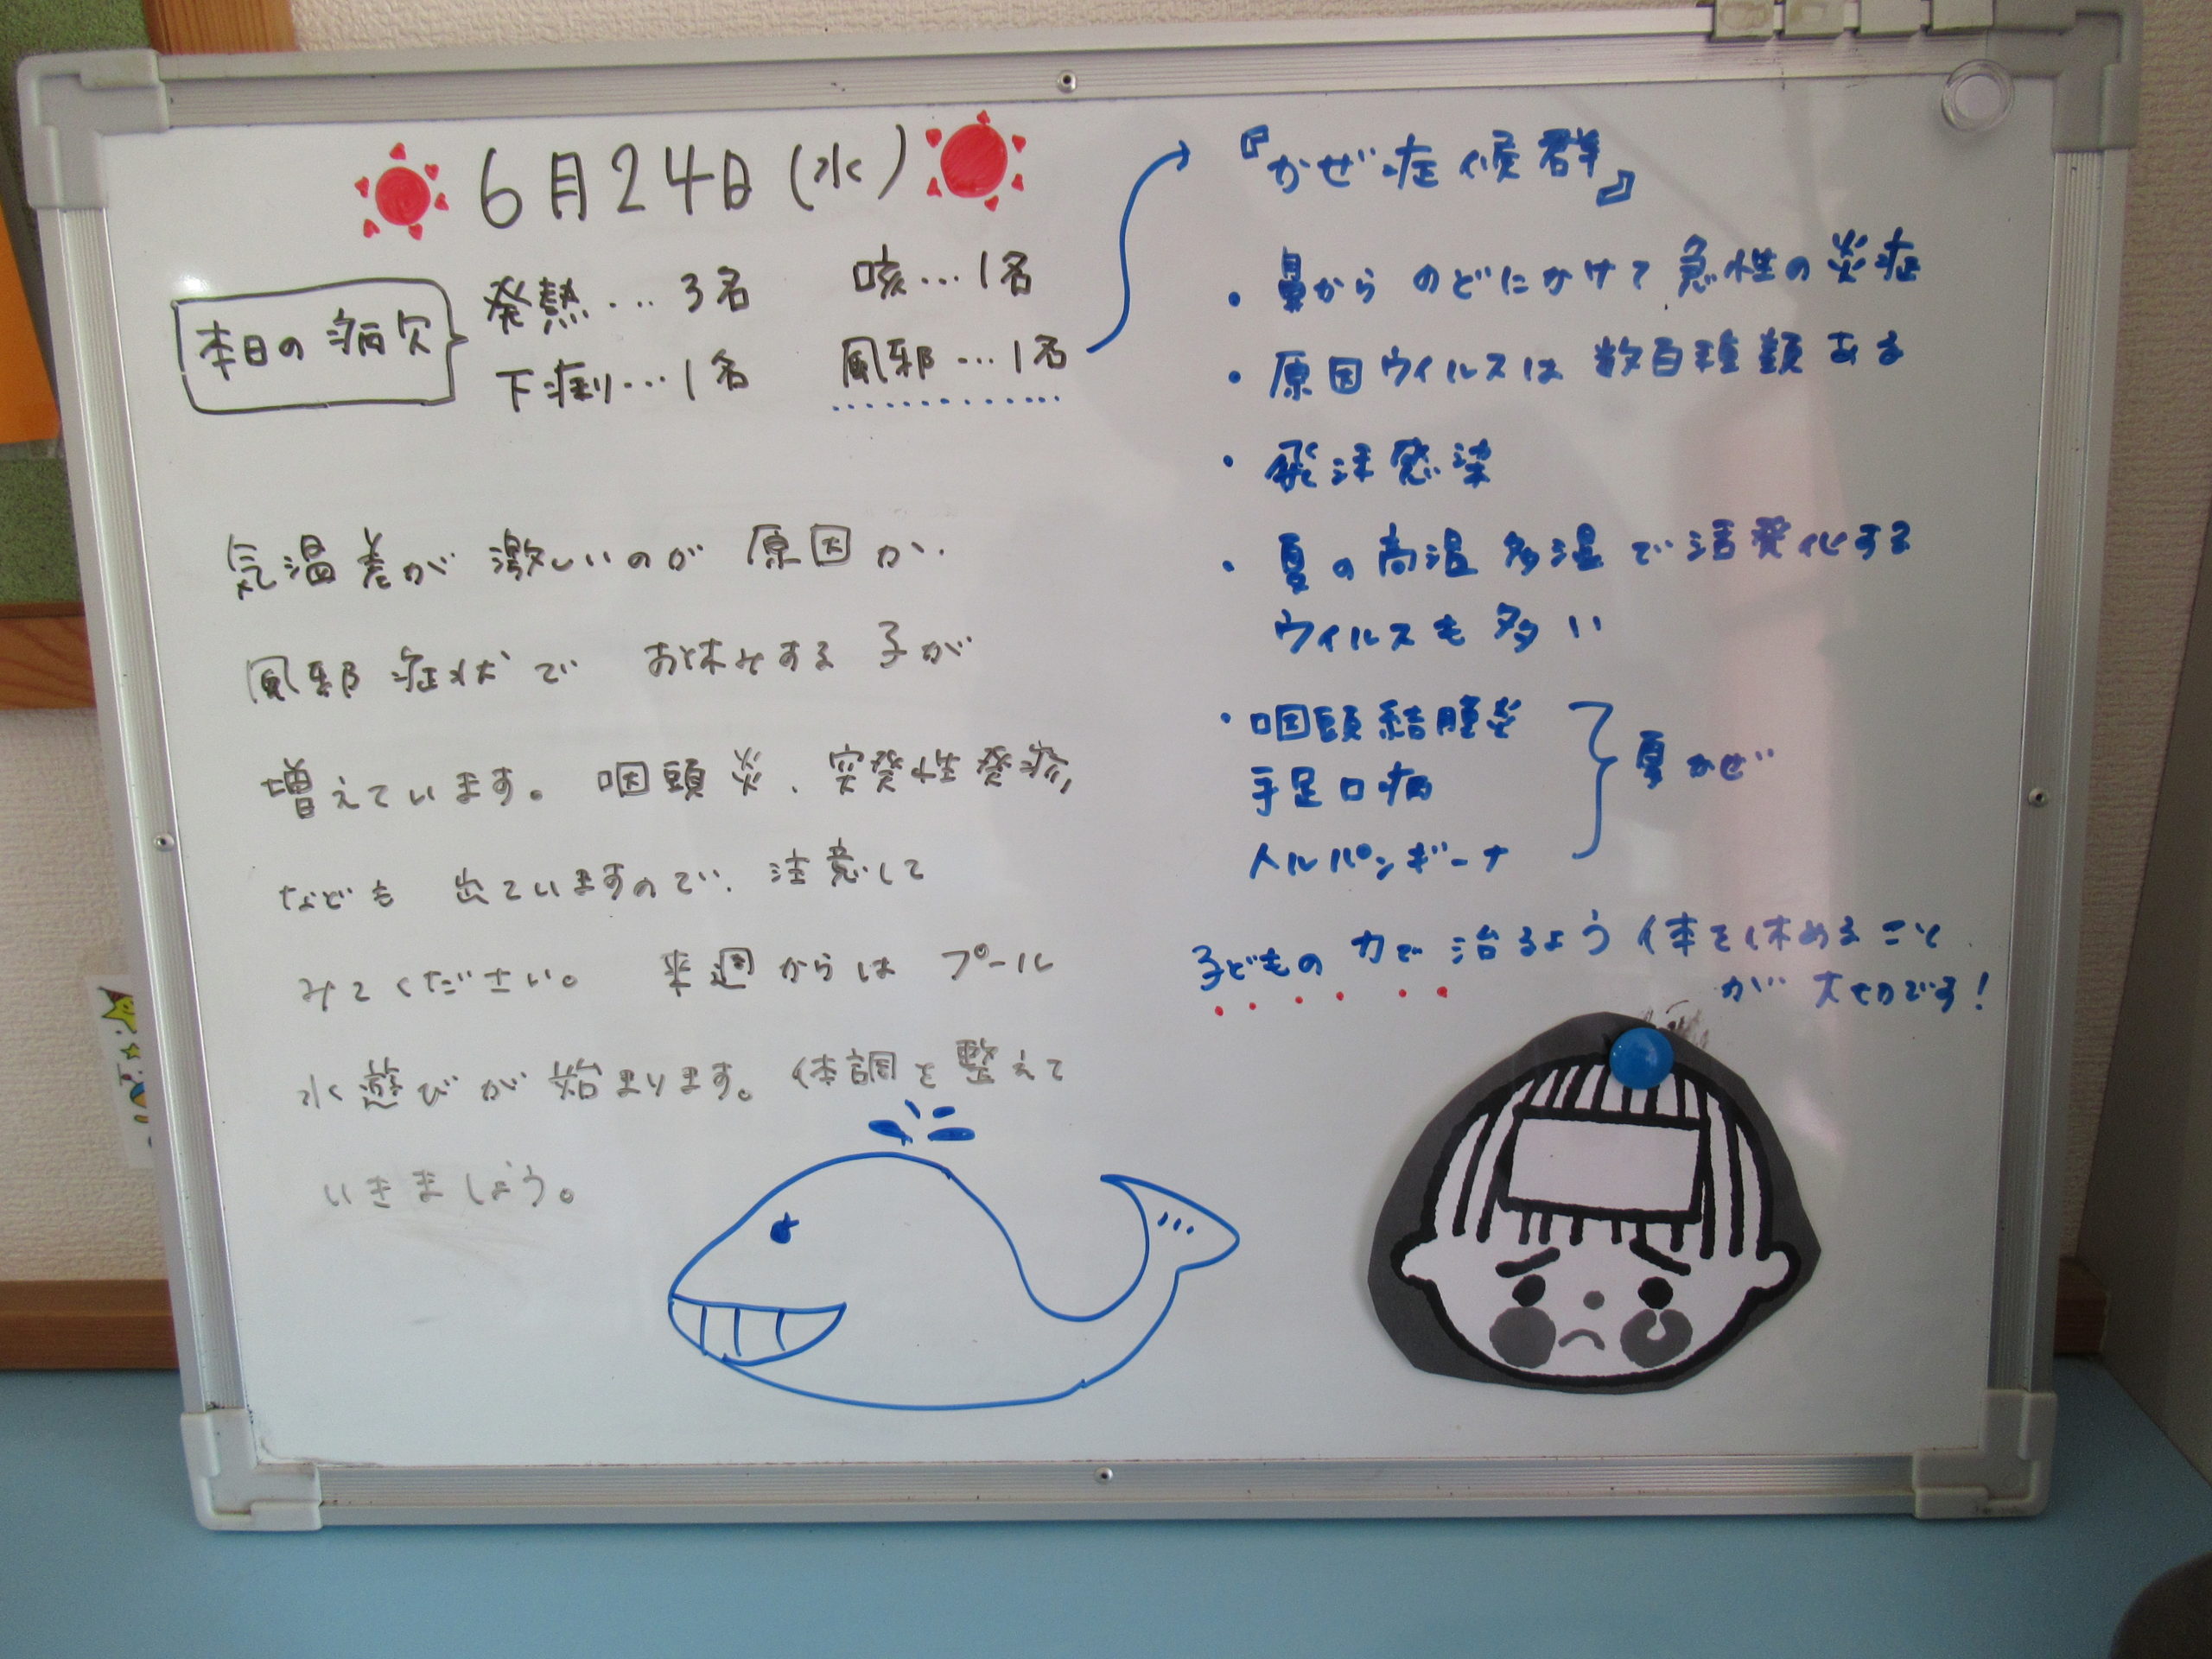 6月24日(水)
本日の病欠
発熱…3名
咳…1名
下痢…1名
風邪…1名
気温差が激しいのが原因か、
風邪症状でお休みする子が
増えています。咽頭炎、突発性発疹
なども出ていますので、注意して
みてください。来週からはプール
水遊びが始まります。体調を整えて
いきましょう。
『かぜ症候群』
・鼻からのどにかけて急性の炎症
・原因ウイルスは数百種類ある
・飛沫感染
・夏の高温多湿で活発化する
ウイルスも多い
・咽頭結膜炎
手足口病
ヘルパンギーナ
夏かぜ
子どもの力で治るよう体を休めること
が大切です！